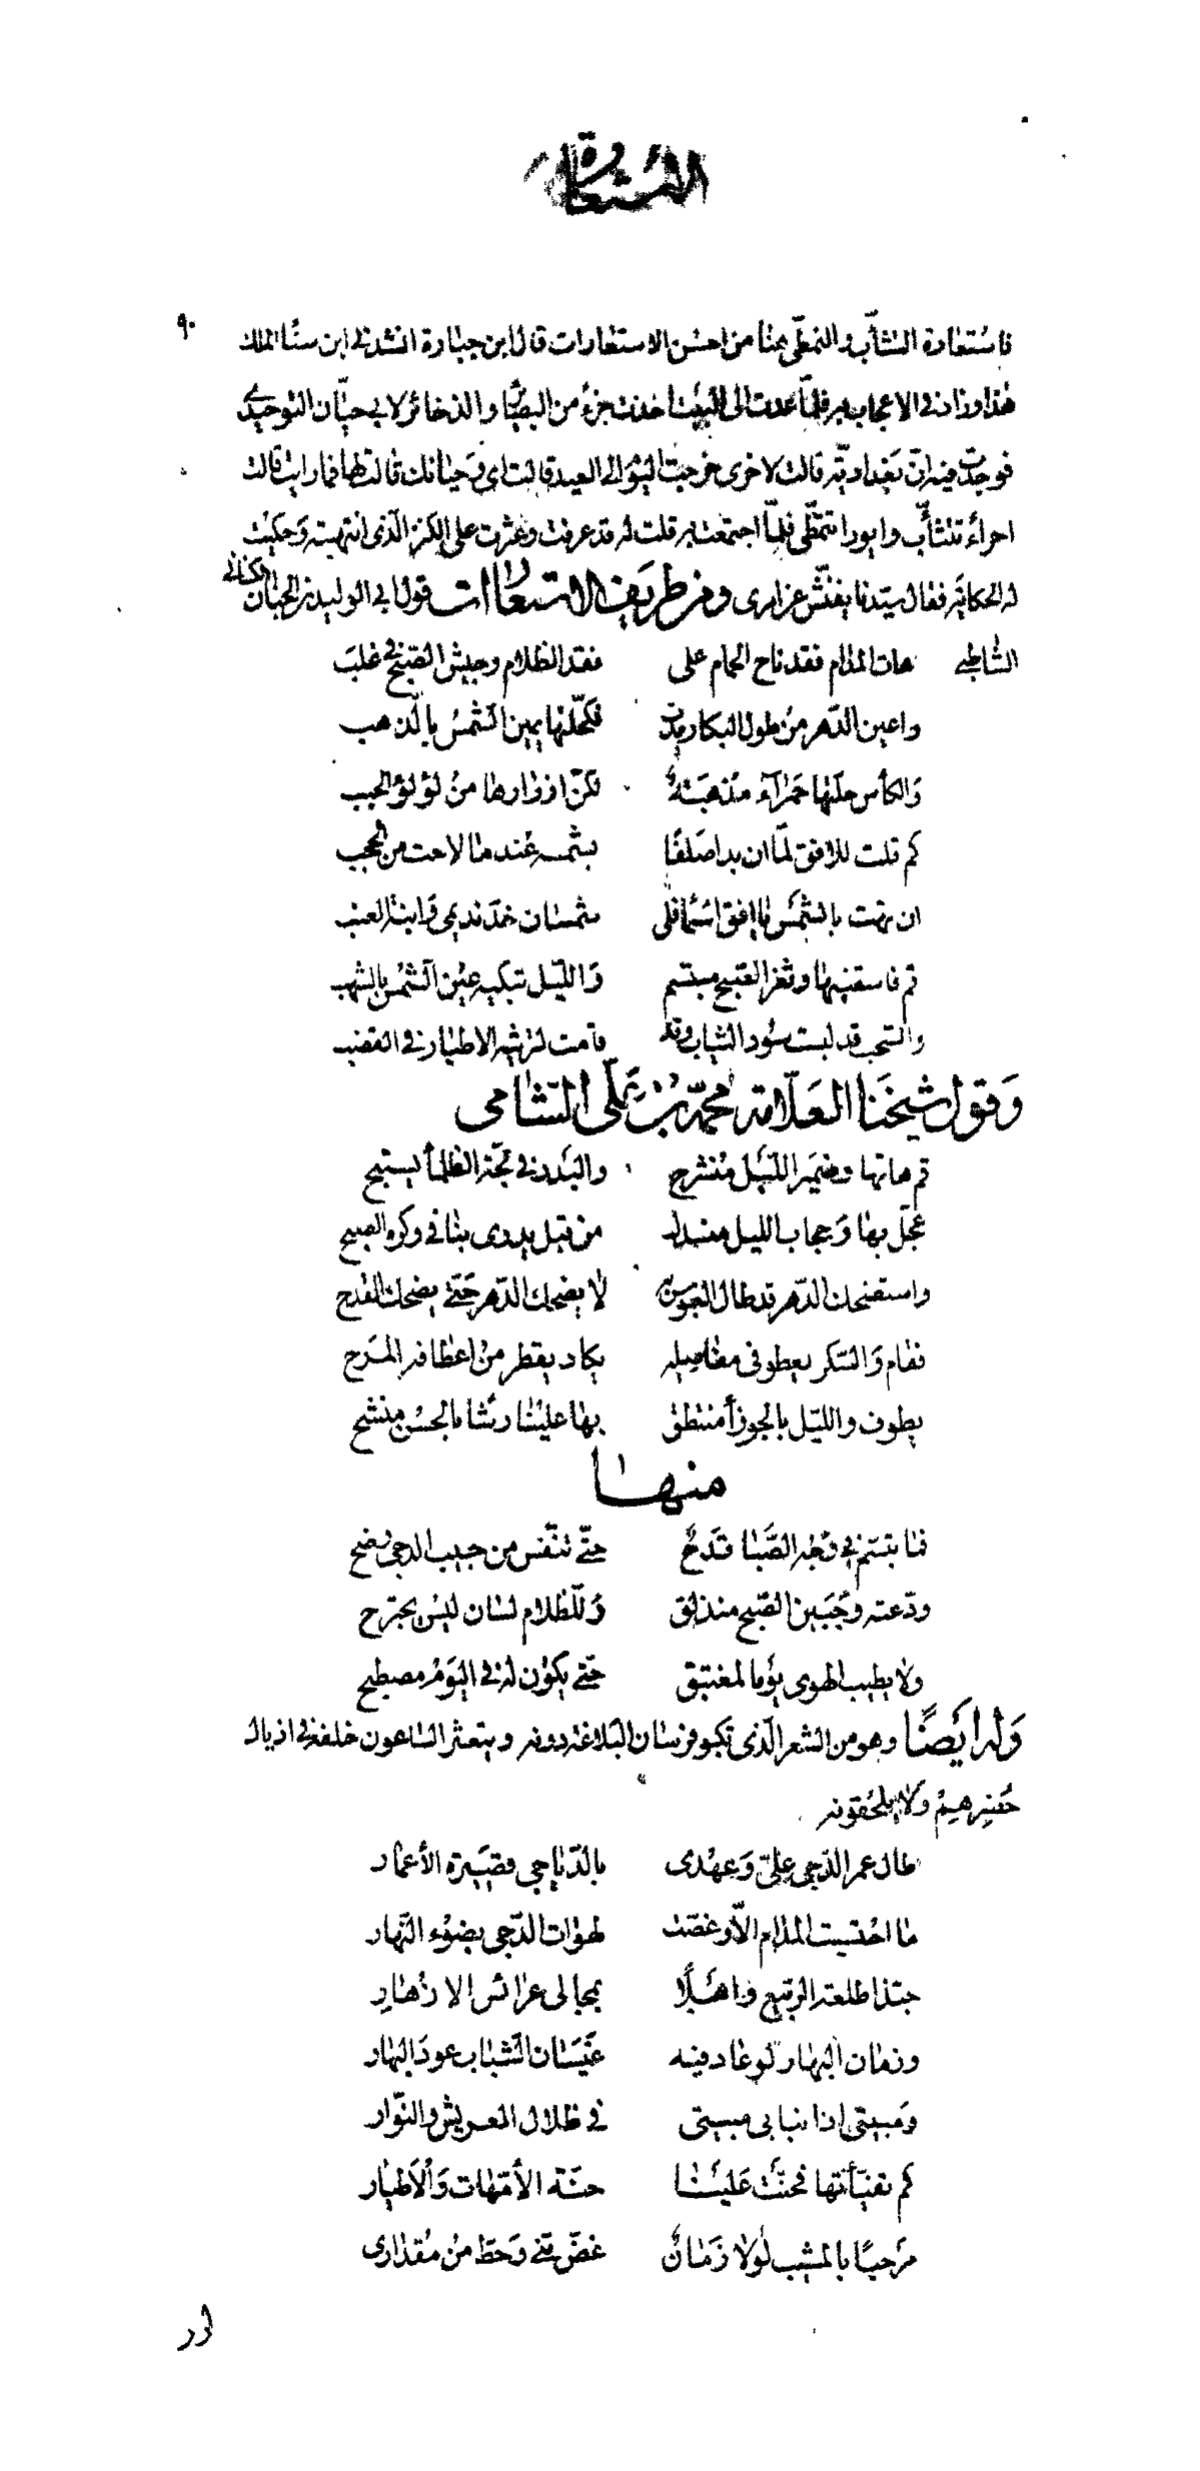 الاستعارة
٩٠
فاستعارة التثأب والتمطى هنا من احسن الاستعارات قال ابن جبارة انشدنى ابن سنا الملك
هذا وزاد فى الاعجاب به فلما عدت الى البيت اخذت جزء من البصائر والذخائر لابى حيان التوحيدى
فوجدت فيه ان بغدادية قالت لاخرى خرجت اليوم الى العيد قالت اى وحياتك قالت لها فما رايت قالت
احراء تتثأب وايورا تتمطى فلما اجتمعت به قلت له قد عرفت وعثرت على الكنز الذى انتهبته وحكيت
له الحكاية فقال سيدنا يفتش عزارى ومن طريف الاستعارات قول ابى الوليد بن الجنان الكنانى
الشاطبى هات المدام فقد ناح الحمام على فقد الظلام وجيش الصبح فى غلب
واعين الدهر من طول البكا رمدت فكحلتها يمين الشمس بالذهب
والكأس حلتها حمراء مذهبة لكن ازرارها من لؤلؤ الحبب
كم قلت للافق لما ان بدا صلفا بشمسه عندما لاحت من الحجب
ان تهت بالشمس يا افق السما فلى شمسان خد نديمى وابنة العنب
قم فاسقنيها وثغر الصبح مبتسم والليل تبكيه عين الشمس بالشهب
والسحب قد لبست سود الثياب وقد قامت لترثيه الاطيار فى القضب
وقول شيخنا العلامة محمد بن على الشامى
قم هاتها وضمير الليل منشرح والبدر فى لجة الظلماء يستبح
عجل بها وحجاب الليل منسدل من قبل يبدو بنا فى وكره الصبح
واستضحك الدهر قد طال العبوس لا يضحك الدهر حتى يضحك القدح
فقام والسكر يعطو فى مفاصله يكاد يقطر من اعطافه المرح
يطوف والليل بالجوزاء منتطق بها علينا رشا بالحسن متشح
منها
فما تبسم فى وجه الصبا قدح حتى تنفس من جيب الدجى وضح
ودعته وجبين الصبح منذلق وللظلام لسان ليس يجترح
ولا يطيب الهوى يوما لمغتبق حتى يكون له فى اليوم مصطبح
وله ايضا وهو من الشعر الذى تكبو فرسان البلاغة دونه ويتعثر الساعون خلفه فى اذيال
حصرهم ولا يلحقونه
طال عمر الدجى على وعهدى بالدياجى قصيرة الأعمار
ما احتسيت المدام الا وغصت لهوات الدجى بضوء النهار
حبذا طلعة الربيع واهلا بمجالى عرائس الازهار
وزمان البهار لو عاد فيه غيسان الشباب عود البهار
ومبيتى اذا نبا بى مبيتى فى ظلال العريش والنوار
كم تفيأتها فحنت علينا حنة الأمهات والأطيار
مرحبا بالمشيب لولا زمان غض منى وحط من مقدارى